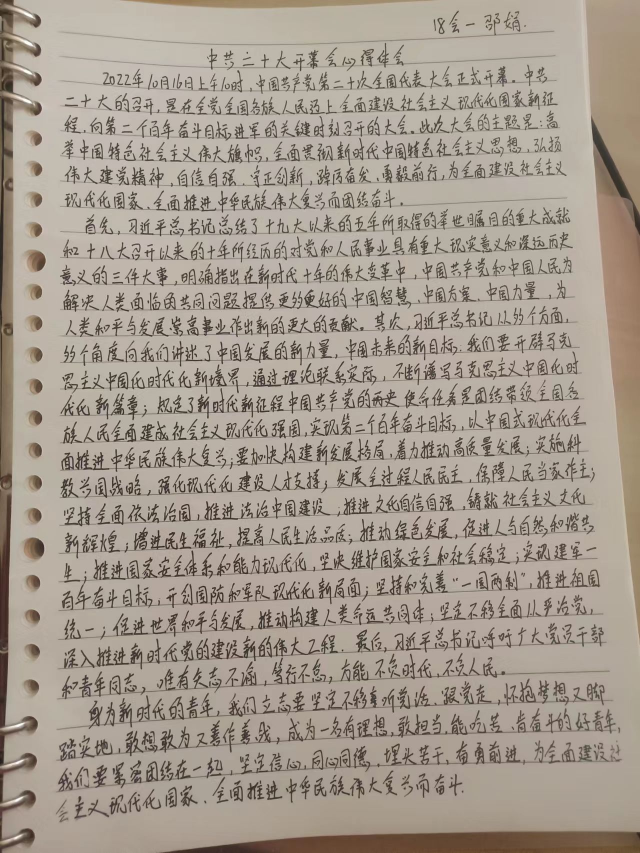 18会一 邹娟.
中共二十大开幕会心得体会
2022年10月16日上午10时,中国共产党第二十次全国代表大会正式开幕。中共
二十大的召开,是在全党全国各族人民迈上全面建设社会主义现代化国家新征
程,向第二个百年奋斗目标进军的关键时刻召开的大会。此次大会的主题是:高
举中国特色社会主义伟大旗帜,全面贯彻新时代中国特色社会主义思想,弘扬
伟大建党精神,自信自强、守正创新,踔厉奋发、勇毅前行,为全面建设社会主义
现代化国家、全面推进中华民族伟大复兴而团结奋斗。
首先,习近平总书记总结了十九大以来的五年所取得的举世瞩目的重大成就
和十八大召开以来的十年所经历的对党和人民事业具有重大现实意义和深远历史
意义的三件大事,明确指出在新时代十年的伟大变革中,中国共产党和中国人民为
解决人类面临的共同问题提供更多更好的中国智慧、中国方案、中国力量,为
人类和平与发展崇高事业作出新的更大的贡献。其次,习近平总书记从多个方面,
多个角度向我们讲述了中国发展的新力量,中国未来的新目标.我们要开辟马克
思主义中国化时代化新境界,通过理论联系实际,不断谱写马克思主义中国化时
代化新篇章;规定了新时代新征程中国共产党的历史使命任务是团结带领全国各
族人民全面建成社会主义现代化强国,实现第二个百年奋斗目标,以中国式现代化全
面推进中华民族伟大复兴;要加快构建新发展格局,着力推动高质量发展;实施科
教兴国战略,强化现代化建设人才支撑;发展全过程人民民主,保障人民当家作主;
坚持全面依法治国,推进法治中国建设;推进文化自信自强,铸就社会主义文化
新辉煌;增进民生福祉,提高人民生活品质;推动绿色发展,促进人与自然和谐共
生;推进国家安全体系和能力现代化,坚决维护国家安全和社会稳定;实现建军一
百年奋斗目标,开创国防和军队现代化新局面;坚持和完善“一国两制”,推进祖国
统一;促进世界和平与发展,推动构建人类命运共同体;坚定不移全面从严治党,
深入推进新时代党的建设新的伟大工程.最后,习近平总书记呼吁广大党员干部
和青年同志,唯有矢志不渝、笃行不怠,方能不负时代,不负人民。
身为新时代的青年,我们立志要坚定不移听党话、跟党走,怀抱梦想又脚
踏实地,敢想敢为又善作善成,成为一名有理想、敢担当、能吃苦、肯奋斗的好青年,
我们要紧密团结在一起,坚定信心,同心同德,埋头苦干,奋勇前进,为全面建设社
会主义现代化国家、全面推进中华民族伟大复兴而奋斗.